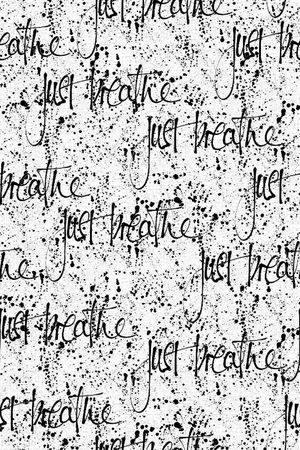 breathe just
just breathe
just breathe
breathe just
just breathe
breathe just breathe
just breathe
just breathe
just breathe
breathe just